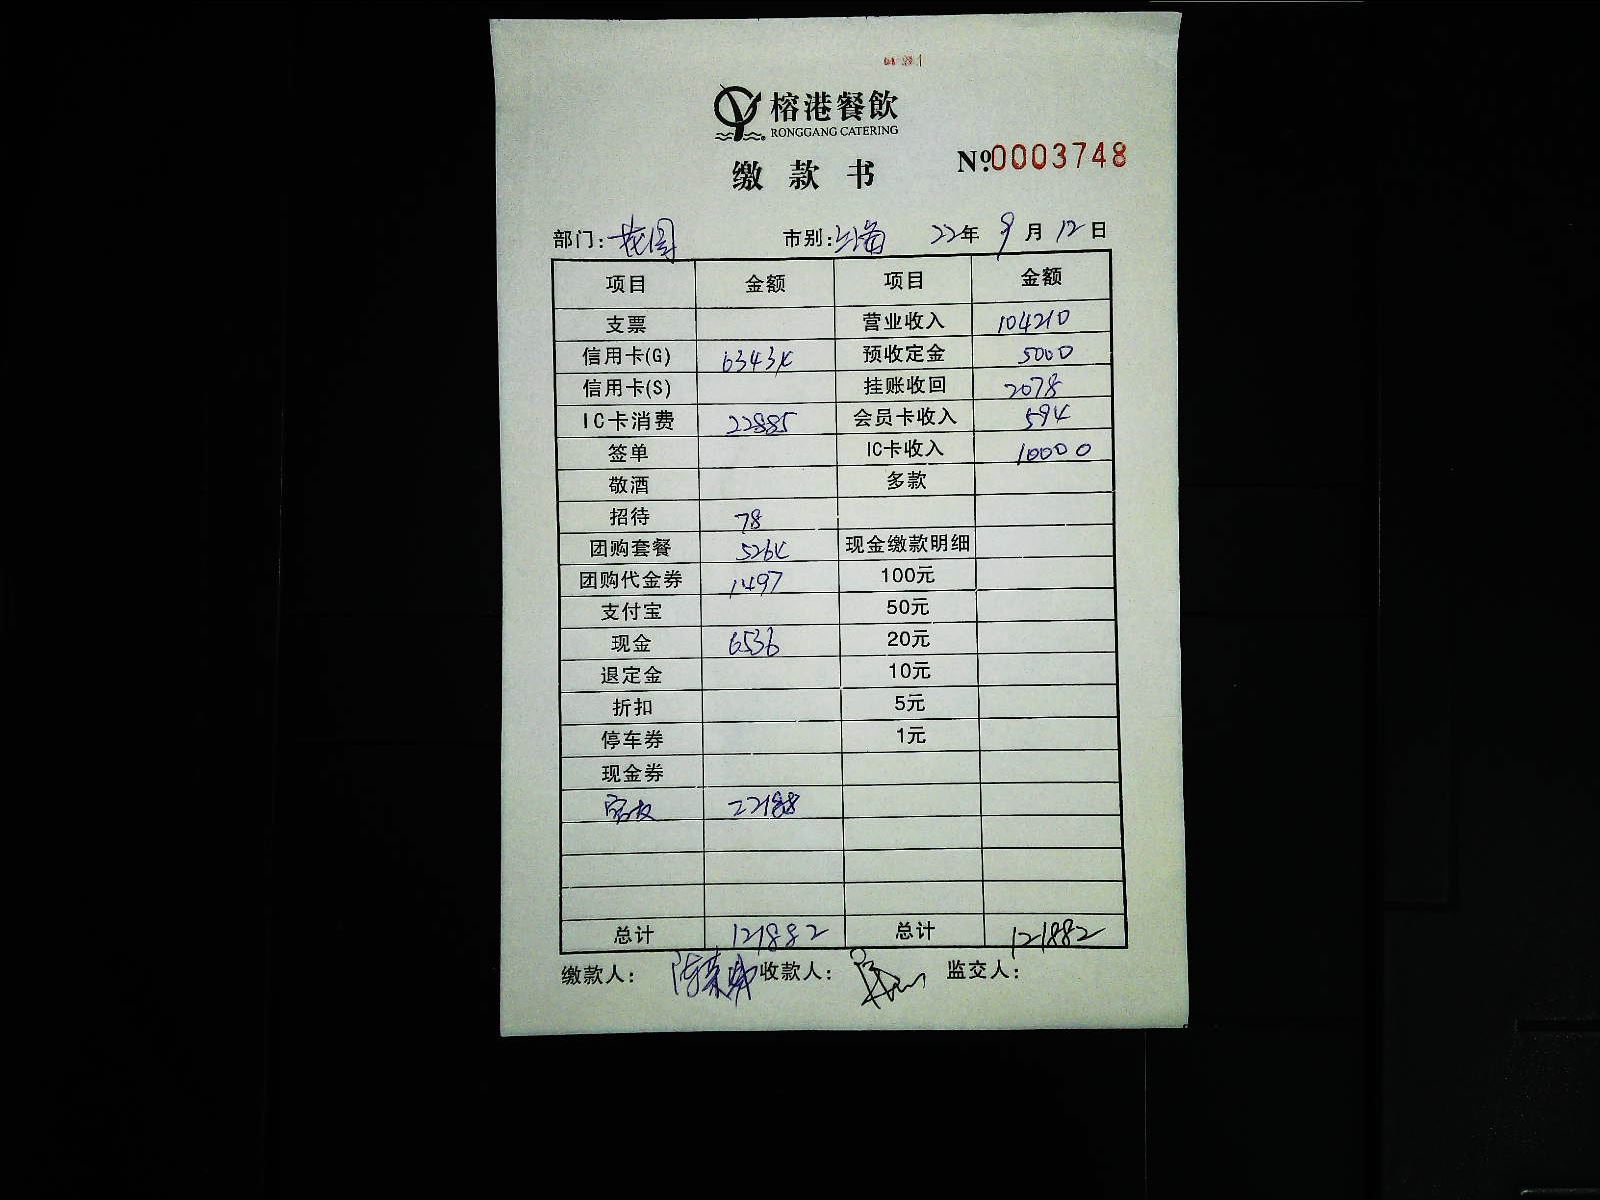 榕港餐飲
RONGGANG CATERING
缴款书
No.0003748
部门: 花园 市别: 上海 22年 9月 12日
项目 金额 项目 金额
支票 营业收入 104210
信用卡(G) 63434 预收定金 5000
信用卡(S) 挂账收回 2078
IC卡消费 22885 会员卡收入 594
签单 IC卡收入 10000
敬酒 多款
招待 78
团购套餐 5264 现金缴款明细
团购代金券 1497 100元
支付宝 50元
现金 6536 20元
退定金 10元
折扣 5元
停车券 1元
现金券
22188
总计 121882 总计 121882
缴款人: 收款人: 监交人: